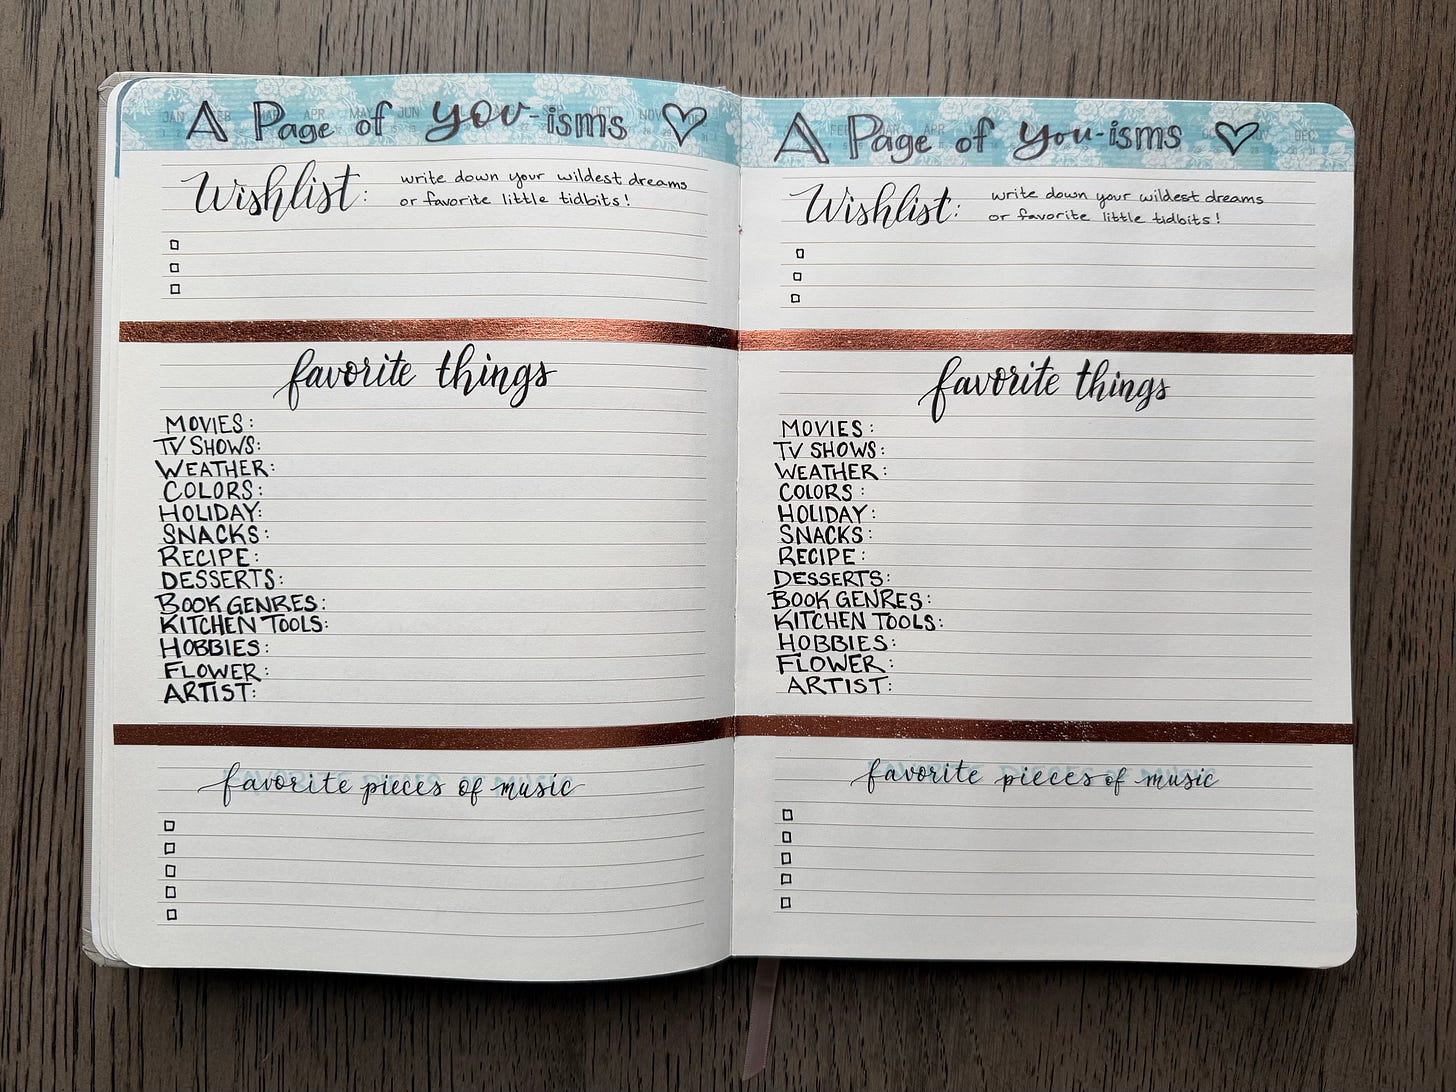 A Page of YOU-isms
Wishlist: write down your wildest dreams
or favorite little tidbits!
favorite things
MOVIES:
TV SHOWS:
WEATHER:
COLORS:
HOLIDAY:
SNACKS:
RECIPE:
DESSERTS:
BOOK GENRES:
KITCHEN TOOLS:
HOBBIES:
FLOWER:
ARTIST:
favorite pieces of music
A Page of You-isms
Wishlist: write down your wildest dreams
or favorite little tidbits!
favorite things
MOVIES:
TV SHOWS:
WEATHER:
COLORS:
HOLIDAY:
SNACKS:
RECIPE:
DESSERTS:
BOOK GENRES:
KITCHEN TOOLS:
HOBBIES:
FLOWER:
ARTIST:
favorite pieces of music